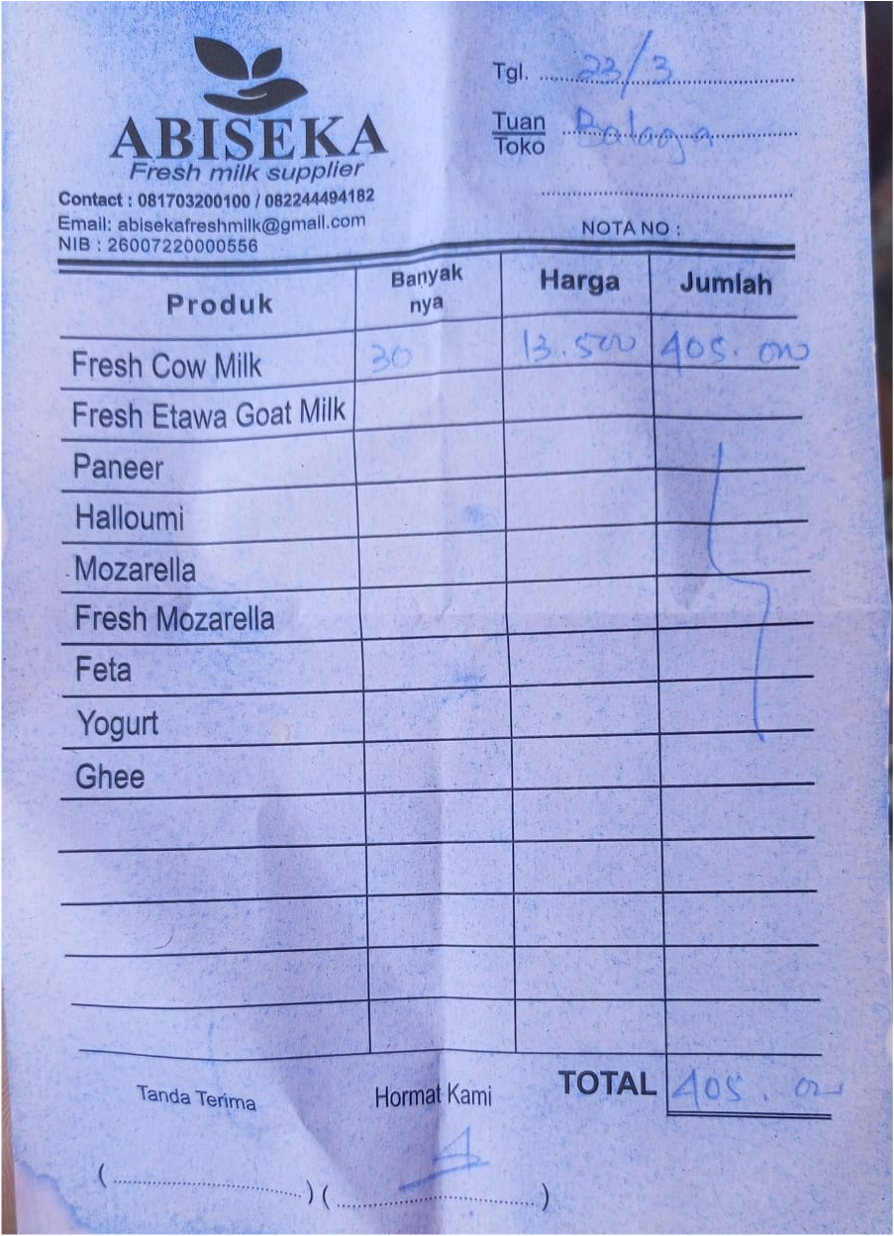 ABISEKA
Fresh milk supplier
Contact : 081703200100 / 082244494182
Email: abisekafreshmilk@gmail.com
NIB : 26007220000556
Tgl. 23/3
Tuan
Toko Balaga
NOTA NO :
Produk Banyak nya Harga Jumlah
Fresh Cow Milk 30 13.500 405.000
Fresh Etawa Goat Milk
Paneer
Halloumi
Mozarella
Fresh Mozarella
Feta
Yogurt
Ghee
TOTAL 405.000
Tanda Terima Hormat Kami